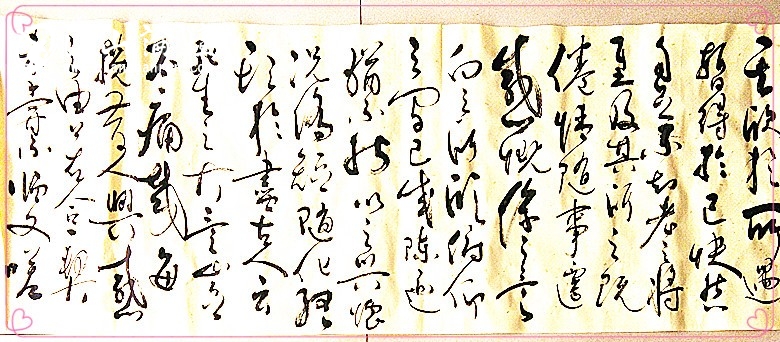 其欣於所遇
暫得於己快然
自足不知老之將
至及其所之既
倦情隨事遷
感慨係之矣
向之所欣俯仰
之間已成陳迹
猶不能以之興懷
況修短隨化終
期於盡古人云
死生亦大矣豈
不痛哉每
攬昔人興感
之由若合一契
未嘗不臨文嗟